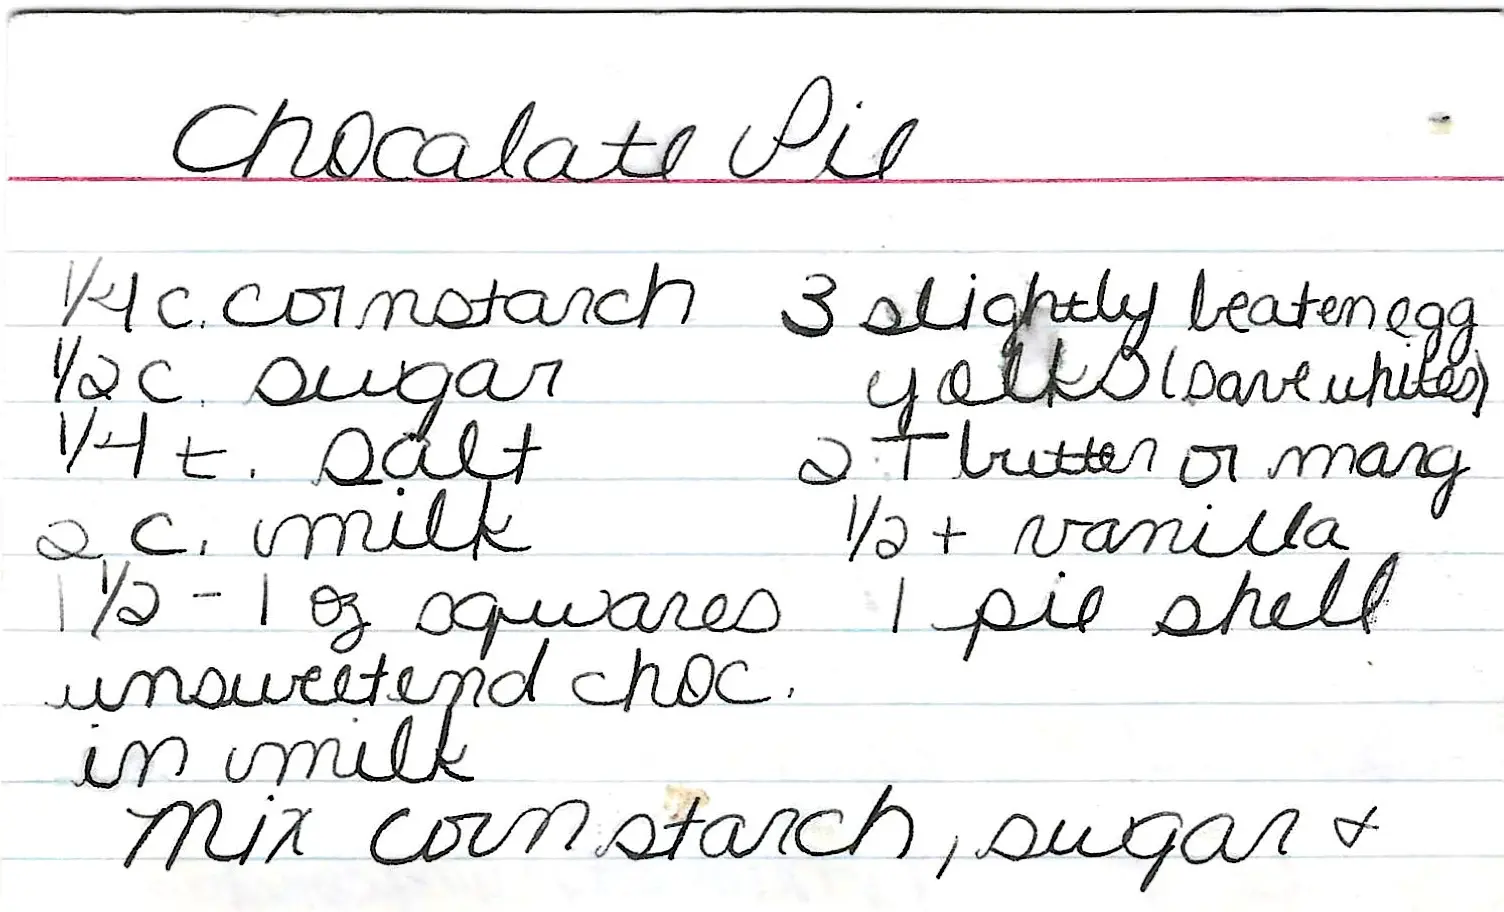 Chocalate Pie
1/4 c. cornstarch
1/2 c. sugar
1/4 t. salt
2 c. milk
1 1/2 - 1 oz squares
unsweetend choc.
in milk
3 slightly beaten egg
yolks (save whites)
2 T butter or marg
1/2 t vanilla
1 pie shell
Mix cornstarch, sugar &